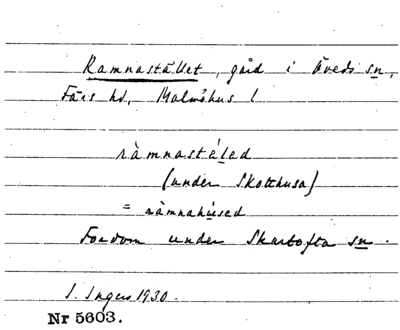 Ramnastället, gård i Öveds sn,
Färs hd, Malmöhus l
ràmnastá̤lad
(under Skotthusa)
= ràmnahúsed
Fordom under Skartofta sn.
I. Ingers 1930.
Nr 5603.